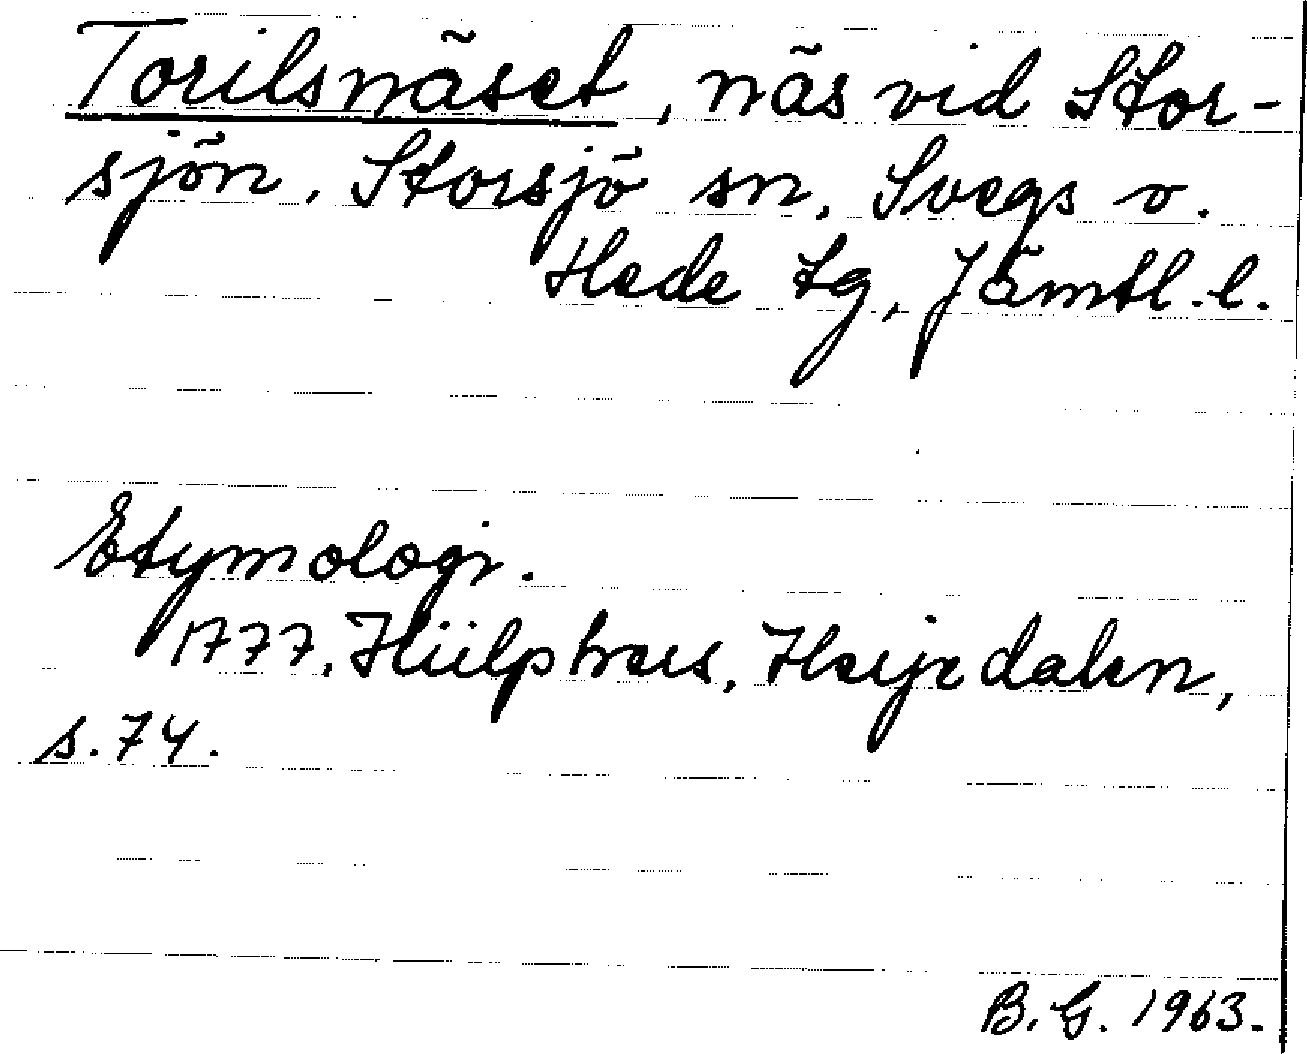 Torilsnäset, näs vid Stor-
sjön, Storsjö sn, Svegs o.
Hede tg, Jämtl. l.
Etymologi.
1777, Hülphers, Herjedalen,
s. 74.
B. G. 1963.